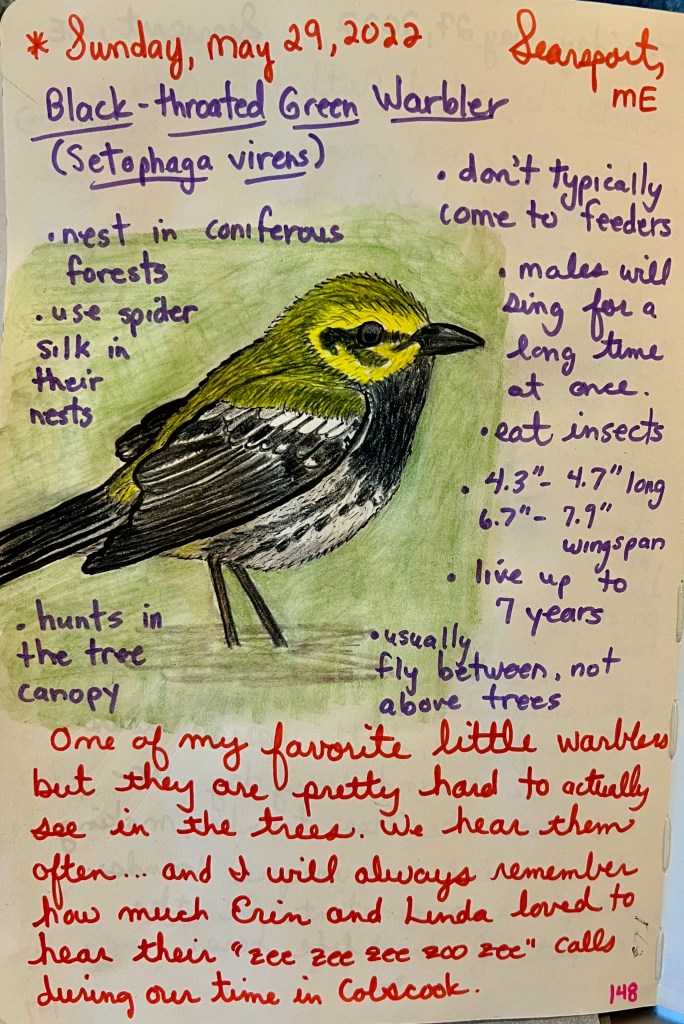 * Sunday, may 29, 2022
Searsport,
ME
Black-throated Green Warbler
(Setophaga virens)
• nest in coniferous
forests
• use spider
silk in
their
nests
• don't typically
come to feeders
• males will
sing for a
long time
at once.
• eat insects
• 4.3"- 4.7" long
6.7"- 7.9"
wingspan
• live up to
7 years
• hunts in
the tree
canopy
• usually
fly between, not
above trees
One of my favorite little warblers
but they are pretty hard to actually
see in the trees. We hear them
often... and I will always remember
how much Erin and Linda loved to
hear their "zee zee zee zoo zee" calls
during our time in Cobscook.
148